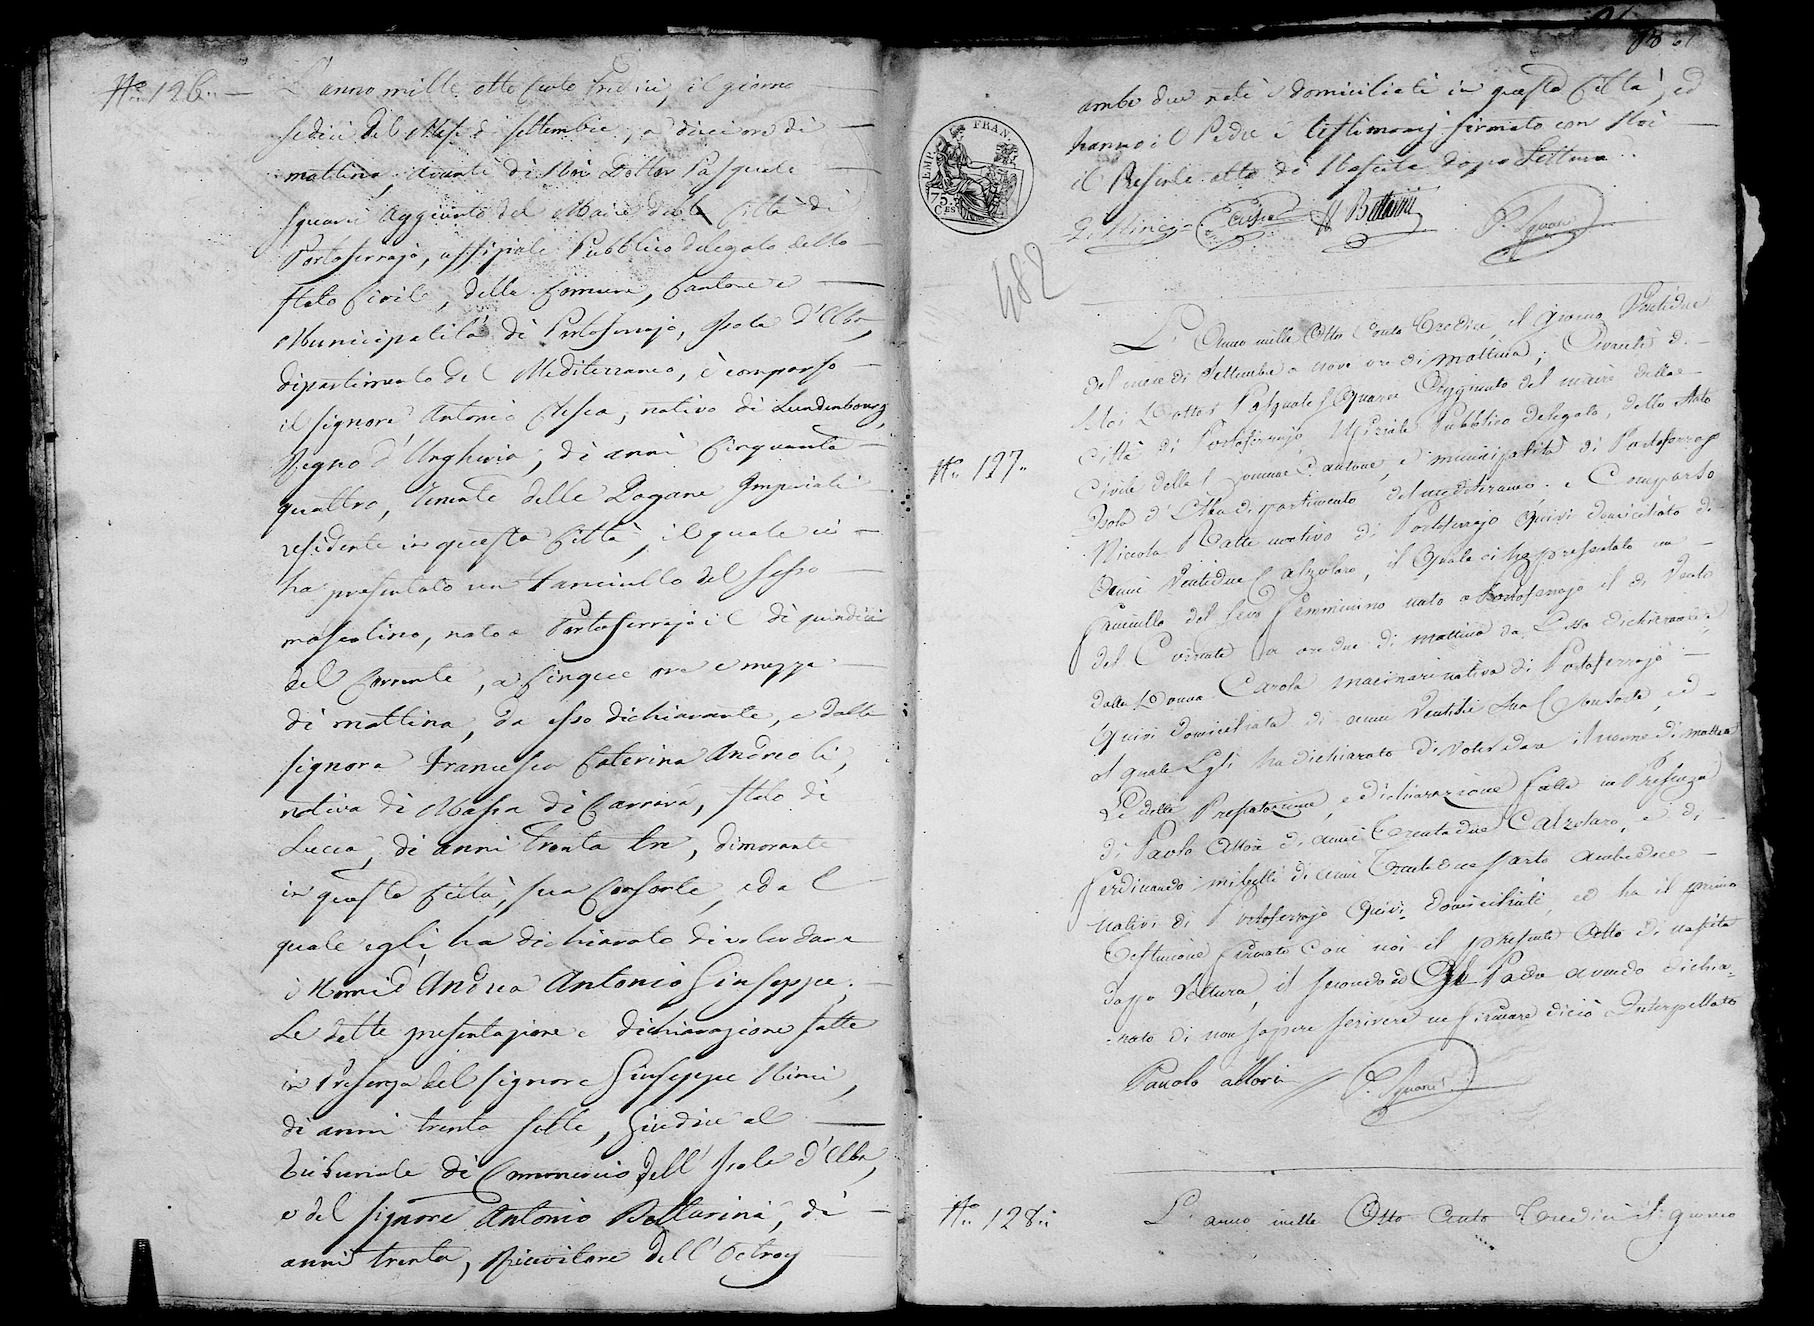 N.° 126.
L'anno mille otto Cento tredici, il giorno
sedici del Mese di settembre, a dieci ore di
mattina, avanti di Noi Dottor Pasquale
Squarci Aggiunto del Maire della Città di
Portoferrajo, uffiziale Pubblico delegato dello
stato Civile, della Comune, Cantone e
Municipalità di Portoferrajo, Isola d'Elba,
dipartimento del Mediterraneo, è comparso
il signore Antonio, nativo di Lundenbourg,
Regno d'Ungheria, di anni Cinquanta
quattro, tenente delle Dogane Imperiali
residente in questa Città, il quale ci
ha presentato un Fanciullo del sesso
mascolino, nato a Portoferrajo il dì quindici
del Corrente, a Cinque ore e mezza
di mattina, da esso dichiarante, e dalla
signora Francesca Caterina Andreoli,
nativa di Massa di Carrara, stato di
Lucca, di anni trenta tre, dimorante
in questa Città, sua Consorte, ed al
quale egli ha dichiarato di voler dare
i Nomi d'Andrea Antonio Giuseppe.
Le dette presentazione e dichiarazione fatte
in Presenza del signore Giuseppe Ninci,
di anni trenta sette, Giudice al
Tribunale di Commercio dell'Isola d'Elba,
e del signore Antonio Bettarini, di
anni trenta, Ricevitore dell'Octroy
ambi due nati e domiciliati in questa Città, ed
hanno il Padre e testimonj firmato con Noi
il Presente atto di Nascita dopo Lettura.
EMP. FRAN.
75 Ces
G. Ninci A Bettarini P. Squarci
482
N.° 127.
L'Anno mille Otto Cento Tredici, il Giorno Ventidue
del mese di Settembre a nove ore di mattina; Avanti di
Noi Dottor Pasquale Squarci Aggiunto del maire della
Città di Portoferrajo, Uffiziale Pubblico delegato, dello stato
Civile della Comune Cantone, e municipalità di Portoferrajo
Isola d'Elba dipartimento del mediteraneo. e Comparso
Niccola Ratti nativo di Portoferrajo Quivi domiciliato di
Anni Ventidue Calzolaro, il Quale ci ha presentato un
fanciullo del sesso femminino nato a Portoferrajo il di Venti
del Corrente a ore due di mattina da Esso dichiarante,
dalla Donna Carola macinari nativa di Portoferrajo
Quivi domiciliata di anni Ventisei sua Consorte, ed
al quale Egli ha dichiarato di voler dare il nome di mattea
Le dette Presentazione, e dichiarazione fatte in Presenza
di Paolo Allori di anni Trentadue Calzolaro, e di
ferdinando mibelli di anni Trentadue sarto ambedue
nativi di Portoferrajo Quivi domiciliati, ed ha il primo
Testimone firmato Con noi il presente Atto di nascita
dopo Lettura, il secondo ed il Padre avendo dichia-
-rato di non sapere scrivere ne firmare diciò Interpellato
Pauolo allori P. Squarci
N.° 128.
L'anno mille Otto Cento Tredici il giorno